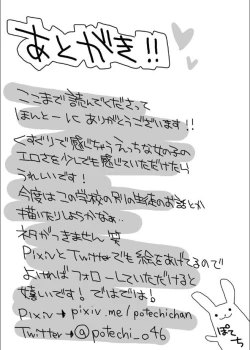 あとがき!!
ここまで読んでくださって
ほんとーにありがとうございます!!
くすぐりで感じちゃうえっちな女の子の
エロさを少しでも感じていただけたら
うれしいです!
今度はこの学校の別の生徒のお話とか
描いたりしようかなぁ..
ネタがつきません 笑
PixivとTwitterでも絵をあげてるので
よければフォローしていただけると
嬉しいです!ではでは!
Pixiv→pixiv.me/potechichan
Twitter→@potechi_o46
ぽてち